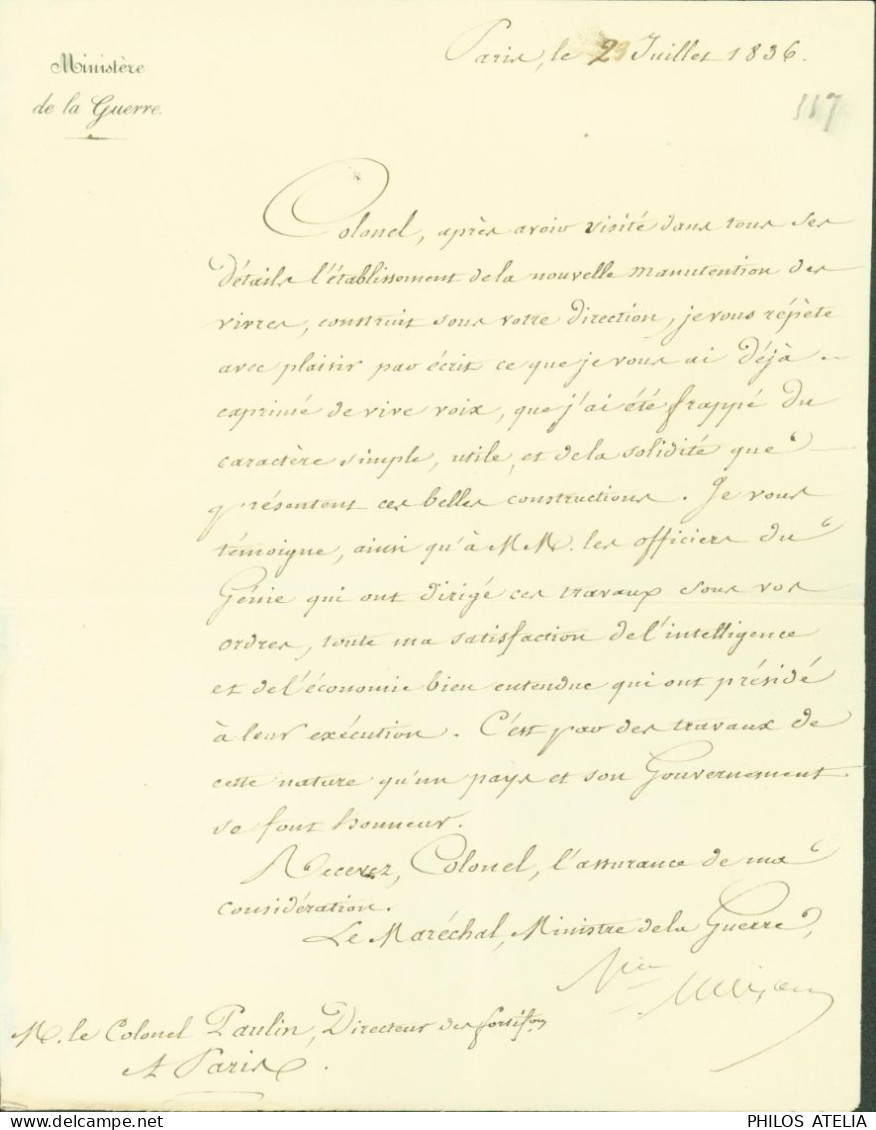 Ministère
de la Guerre.
Paris, le 29 Juillet 1836.
117
Colonel, après avoir visité dans tous ses
détails l'établissement de la nouvelle manutention des
vivres, construit sous votre direction, je vous répète
avec plaisir par écrit ce que je vous ai déjà ex-
exprimé de vive voix, que j'ai été frappé du
caractère simple, utile, et de la solidité que
présentent ces belles constructions. Je vous
témoigne, ainsi qu'à M.M. les officiers du
Génie qui ont dirigé ces travaux sous vos
ordres, toute ma satisfaction de l'intelligence
et de l'économie bien entendue qui ont présidé
à leur exécution. C'est par des travaux de
cette nature qu'un pays et son Gouvernement
se font honneur.
Recevez, Colonel, l'assurance de ma
considération.
Le Maréchal, Ministre de la Guerre,
Mis Maison
M. le Colonel Paulin, Directeur des fortifons
A Paris.
PHILOS ATELIA